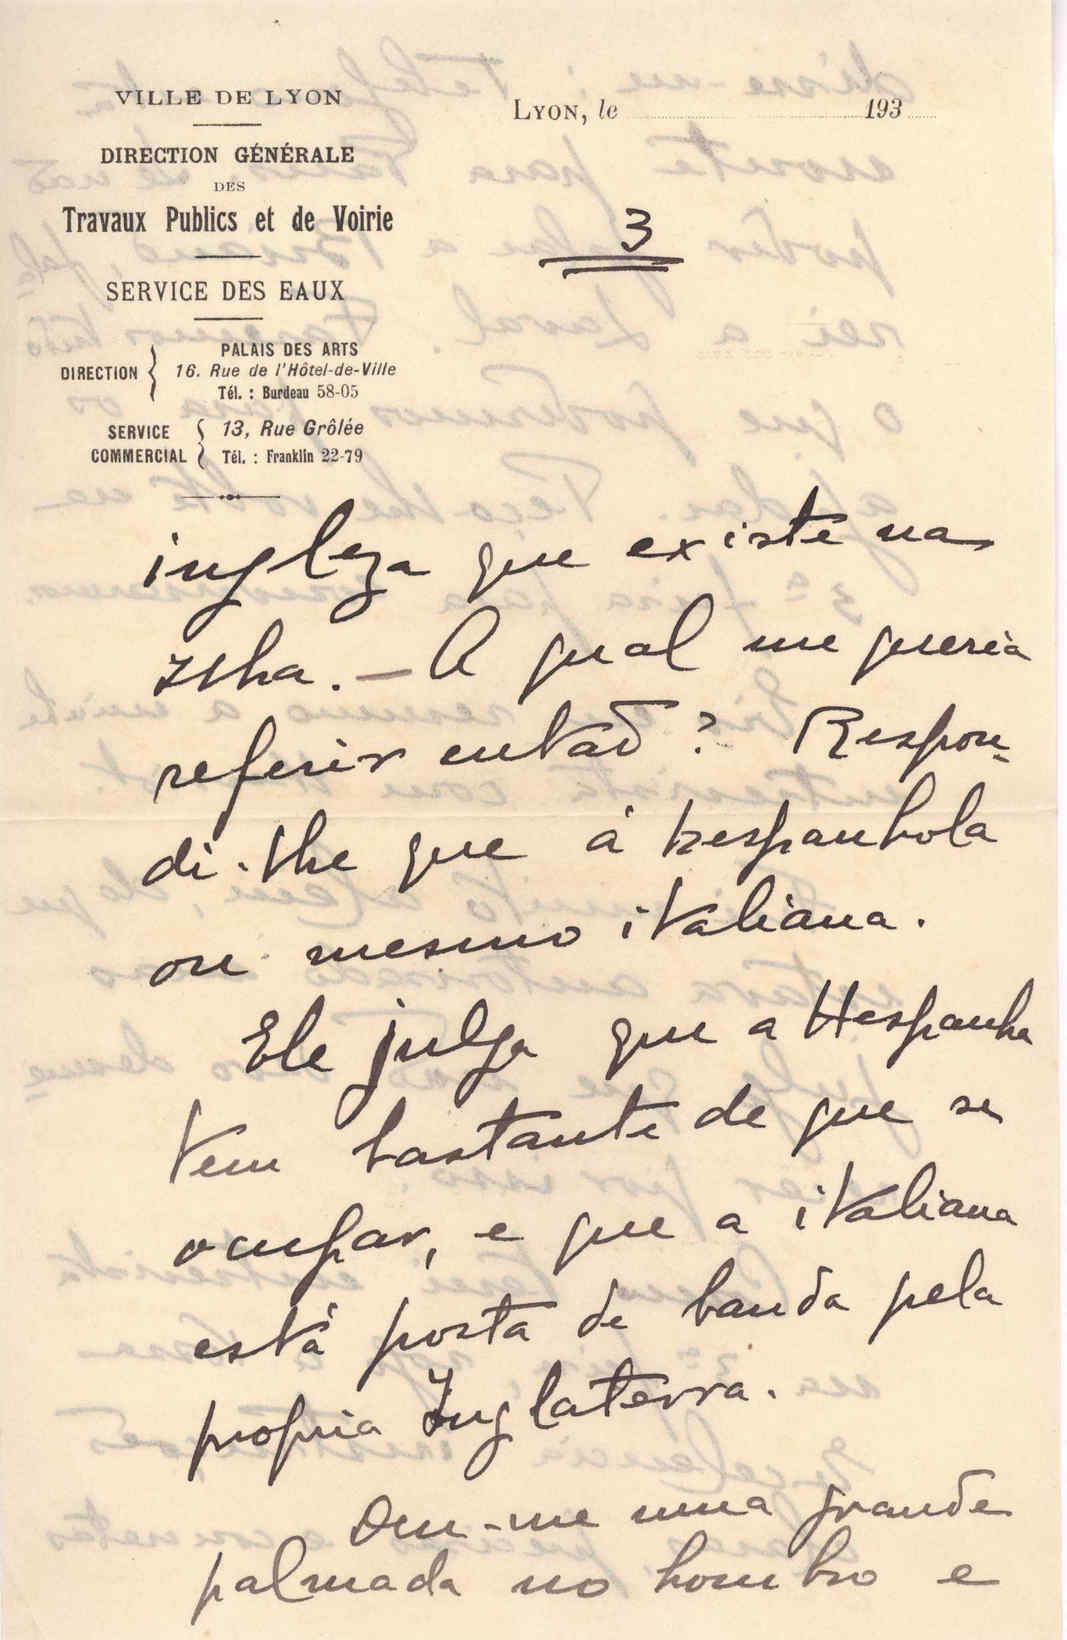 VILLE DE LYON
DIRECTION GÉNÉRALE
DES
Travaux Publics et de Voirie
SERVICE DES EAUX
DIRECTION { PALAIS DES ARTS
16. Rue de l'Hôtel-de-Ville
Tél. : Burdeau 58-05
SERVICE COMMERCIAL { 13, Rue Grôlée
Tél. : Franklin 22-79
LYON, le 193
3
ingleza que existe na
Ilha. — A qual me queria
referir entaõ? Respon-
di-lhe que á hespanhola
ou mesmo italiana.
Ele julga que a Hespanha
tem bastante de que se
ocupar, e que a italiana
está posta de banda pela
propria Inglaterra.
Deu-me uma grande
palmada no hombro e